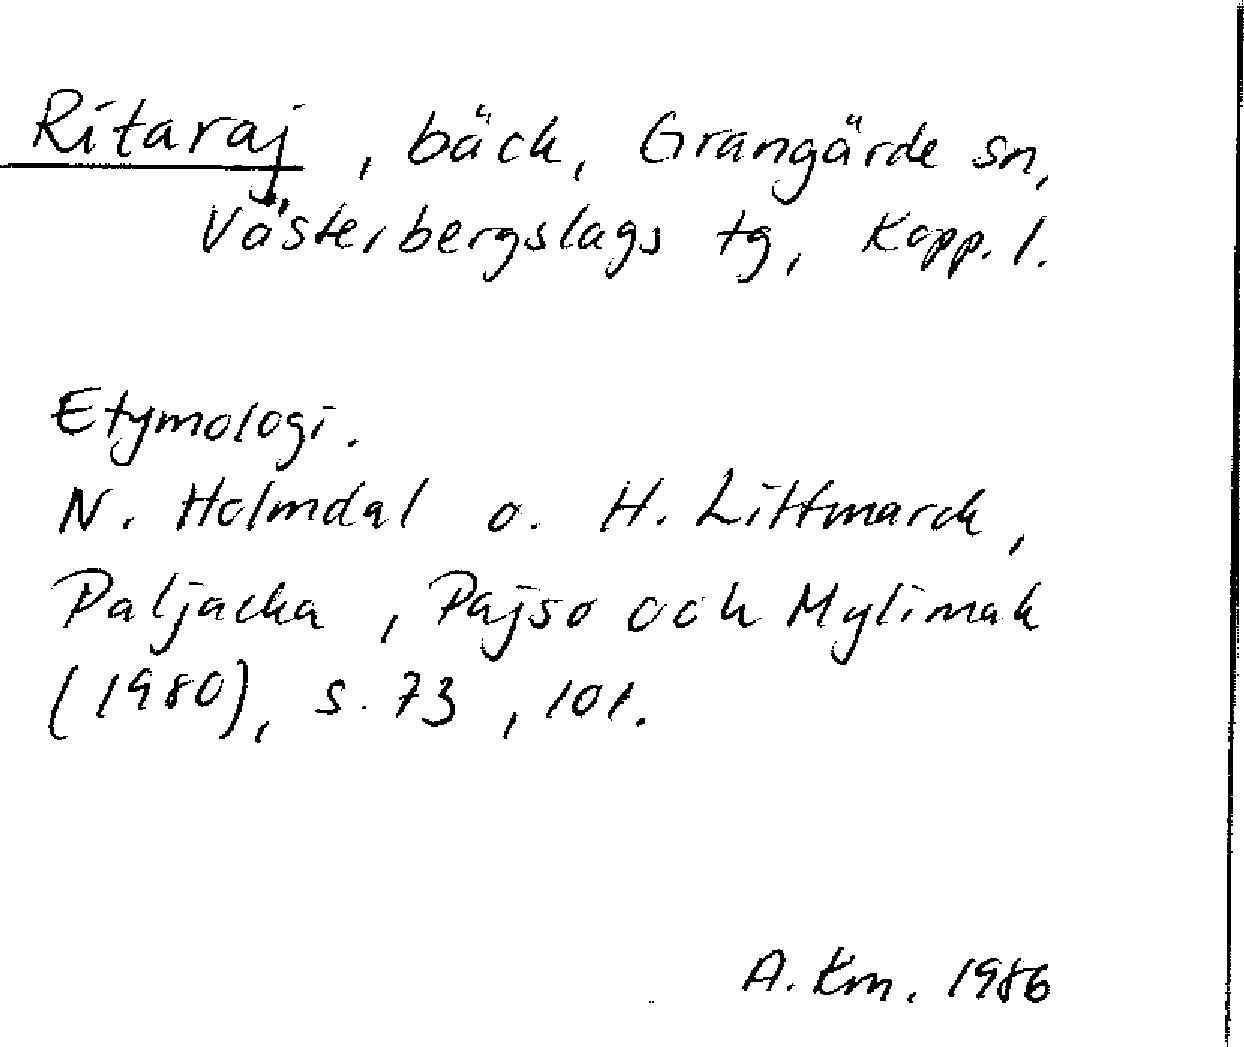 Ritaraj, bäck, Grangärde sn,
Västerbergslags tg, Kopp. l.
Etymologi.
N. Holmdal o. H. Littmarck,
Paljacka, Pajso och Mylimak
(1980), s. 73, 101.
A. Km. 1986